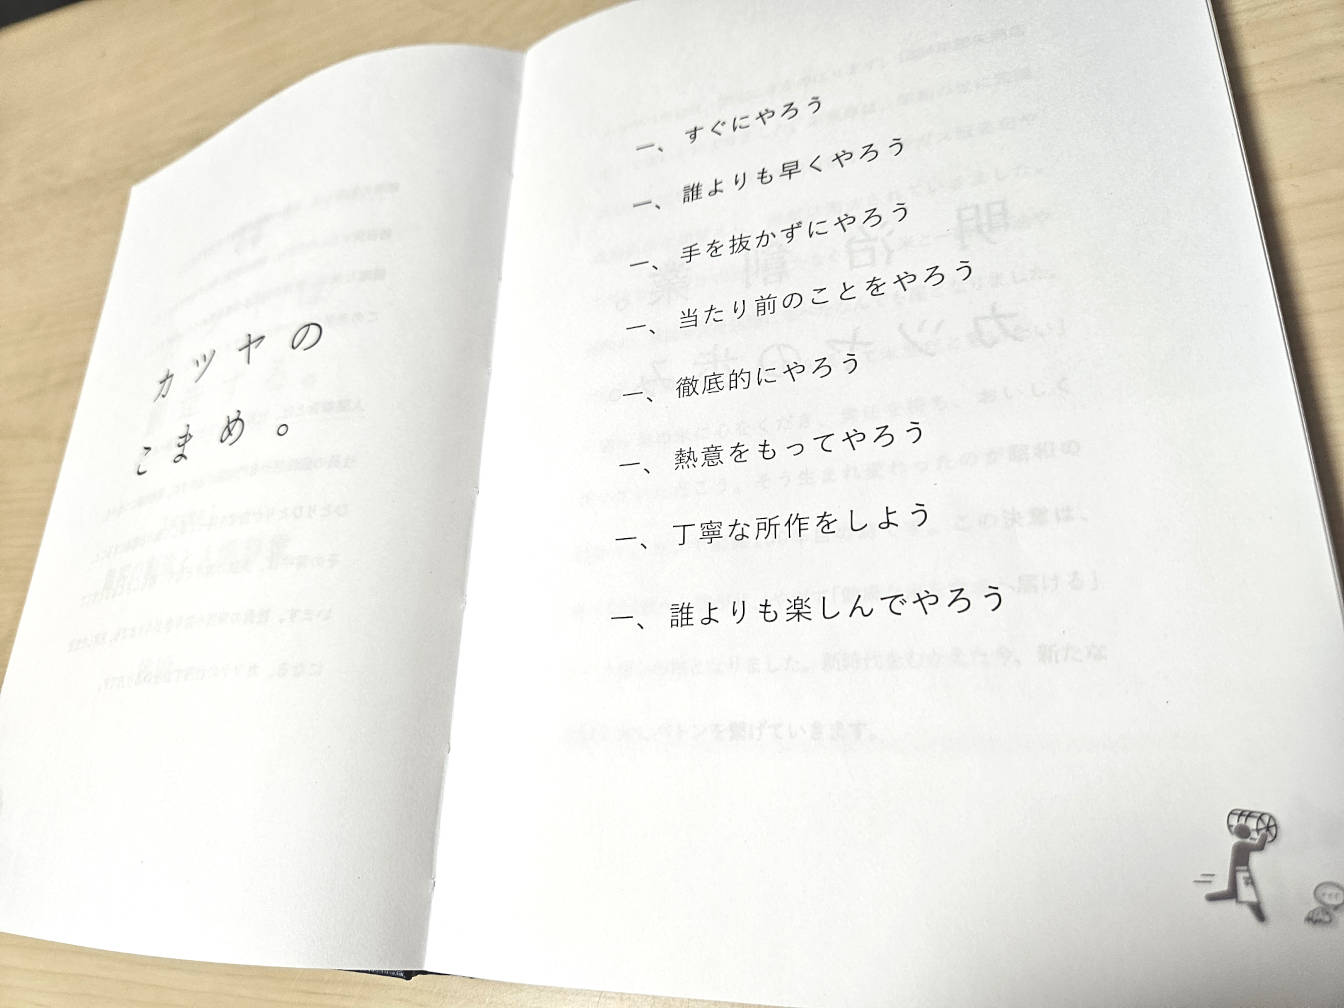 カツヤの
こまめ。
一、すぐにやろう
一、誰よりも早くやろう
一、手を抜かずにやろう
一、当たり前のことをやろう
一、徹底的にやろう
一、熱意をもってやろう
一、丁寧な所作をしよう
一、誰よりも楽しんでやろう